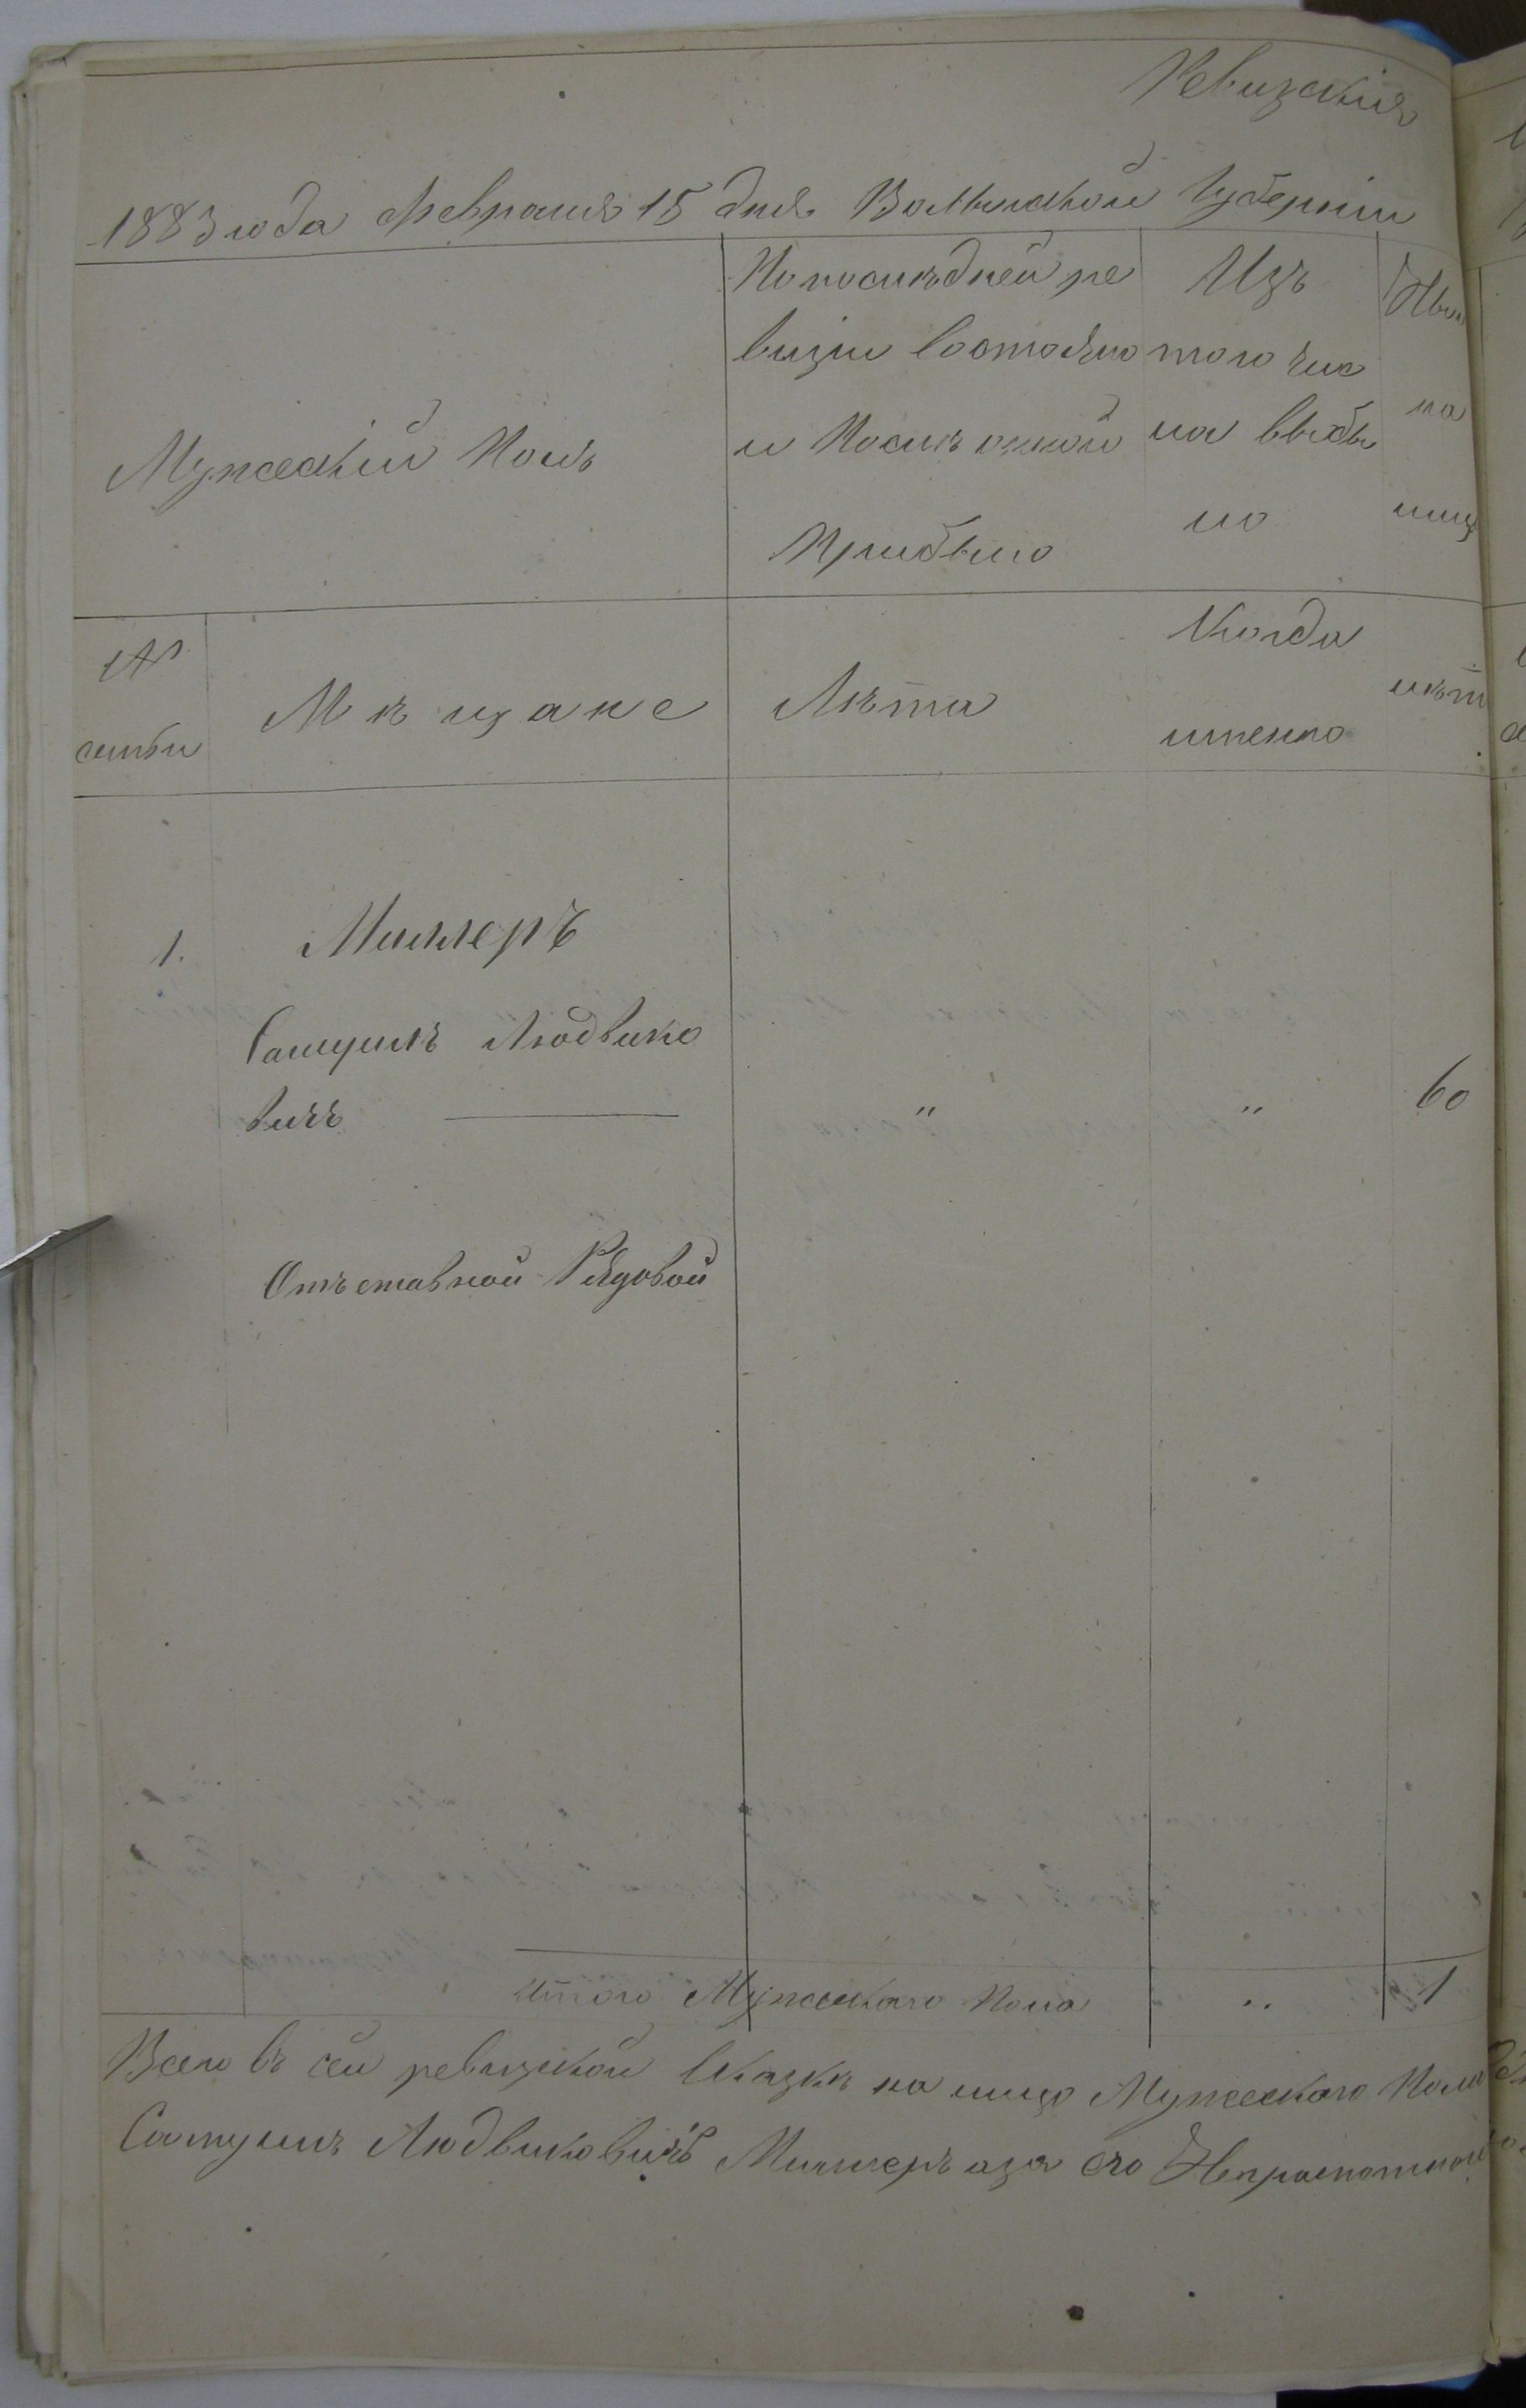 Ревизская
1883 года Февраля 15 дня Волынской Губернiи
Мужескiй Полъ
По послѣдней ре
визiи Состояло
и Послѣ оной
Прибыло
Изъ
того чис
ла выбы
ло
Нын
на
лиц
№
семьи
Мѣщане
Лѣта
Когда
именно
лѣт
1.
Миллеръ
Самуилъ Людвико
вичъ
"
"
60
Отъставной Рядовой
Итого Мужескаго Пола
"
1
Всего въ сей ревизской Сказкѣ на лицо Мужескаго Пола
Самуилъ Людвиковичъ Миллеръ а за его Неграмотного